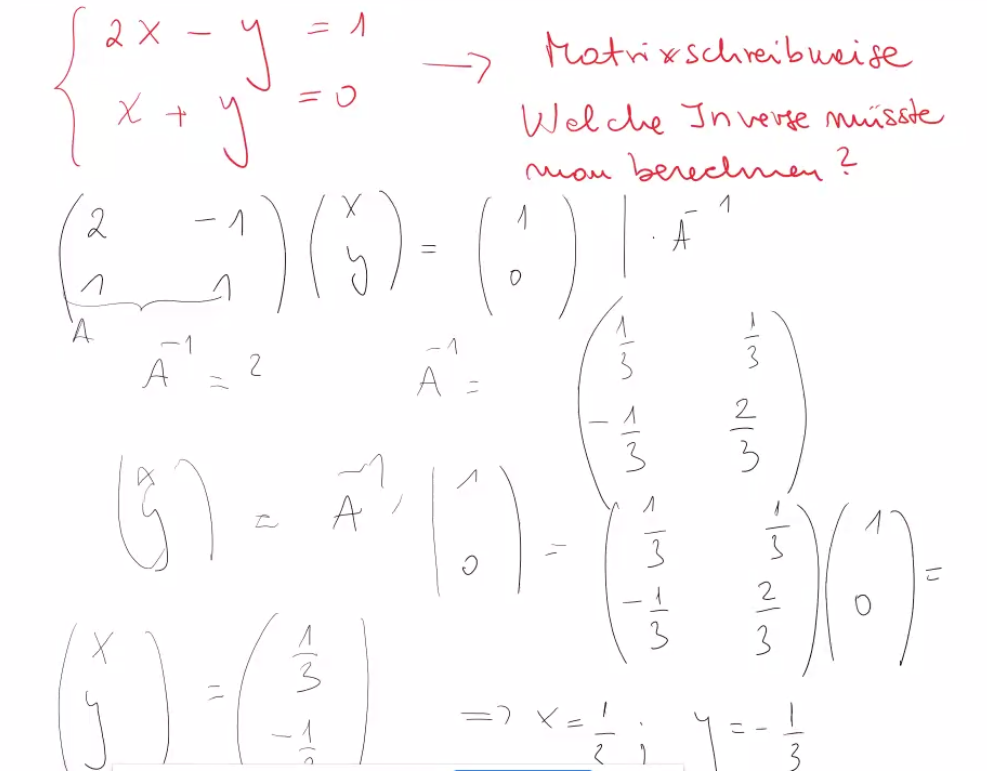 2x - y = 1 → Matrixschreibweise
x + y = 0 Welche Inverse müsste
man berechnen?
(2 -1; 1 1) (x; y) = (1; 0) | · A⁻¹
A
A⁻¹ = ? A⁻¹ = (1/3 1/3; -1/3 2/3)
(x; y) = A⁻¹ · (1; 0) = (1/3 1/3; -1/3 2/3) (1; 0) =
(x; y) = (1/3; -1/3) => x = 1/3 ; y = - 1/3